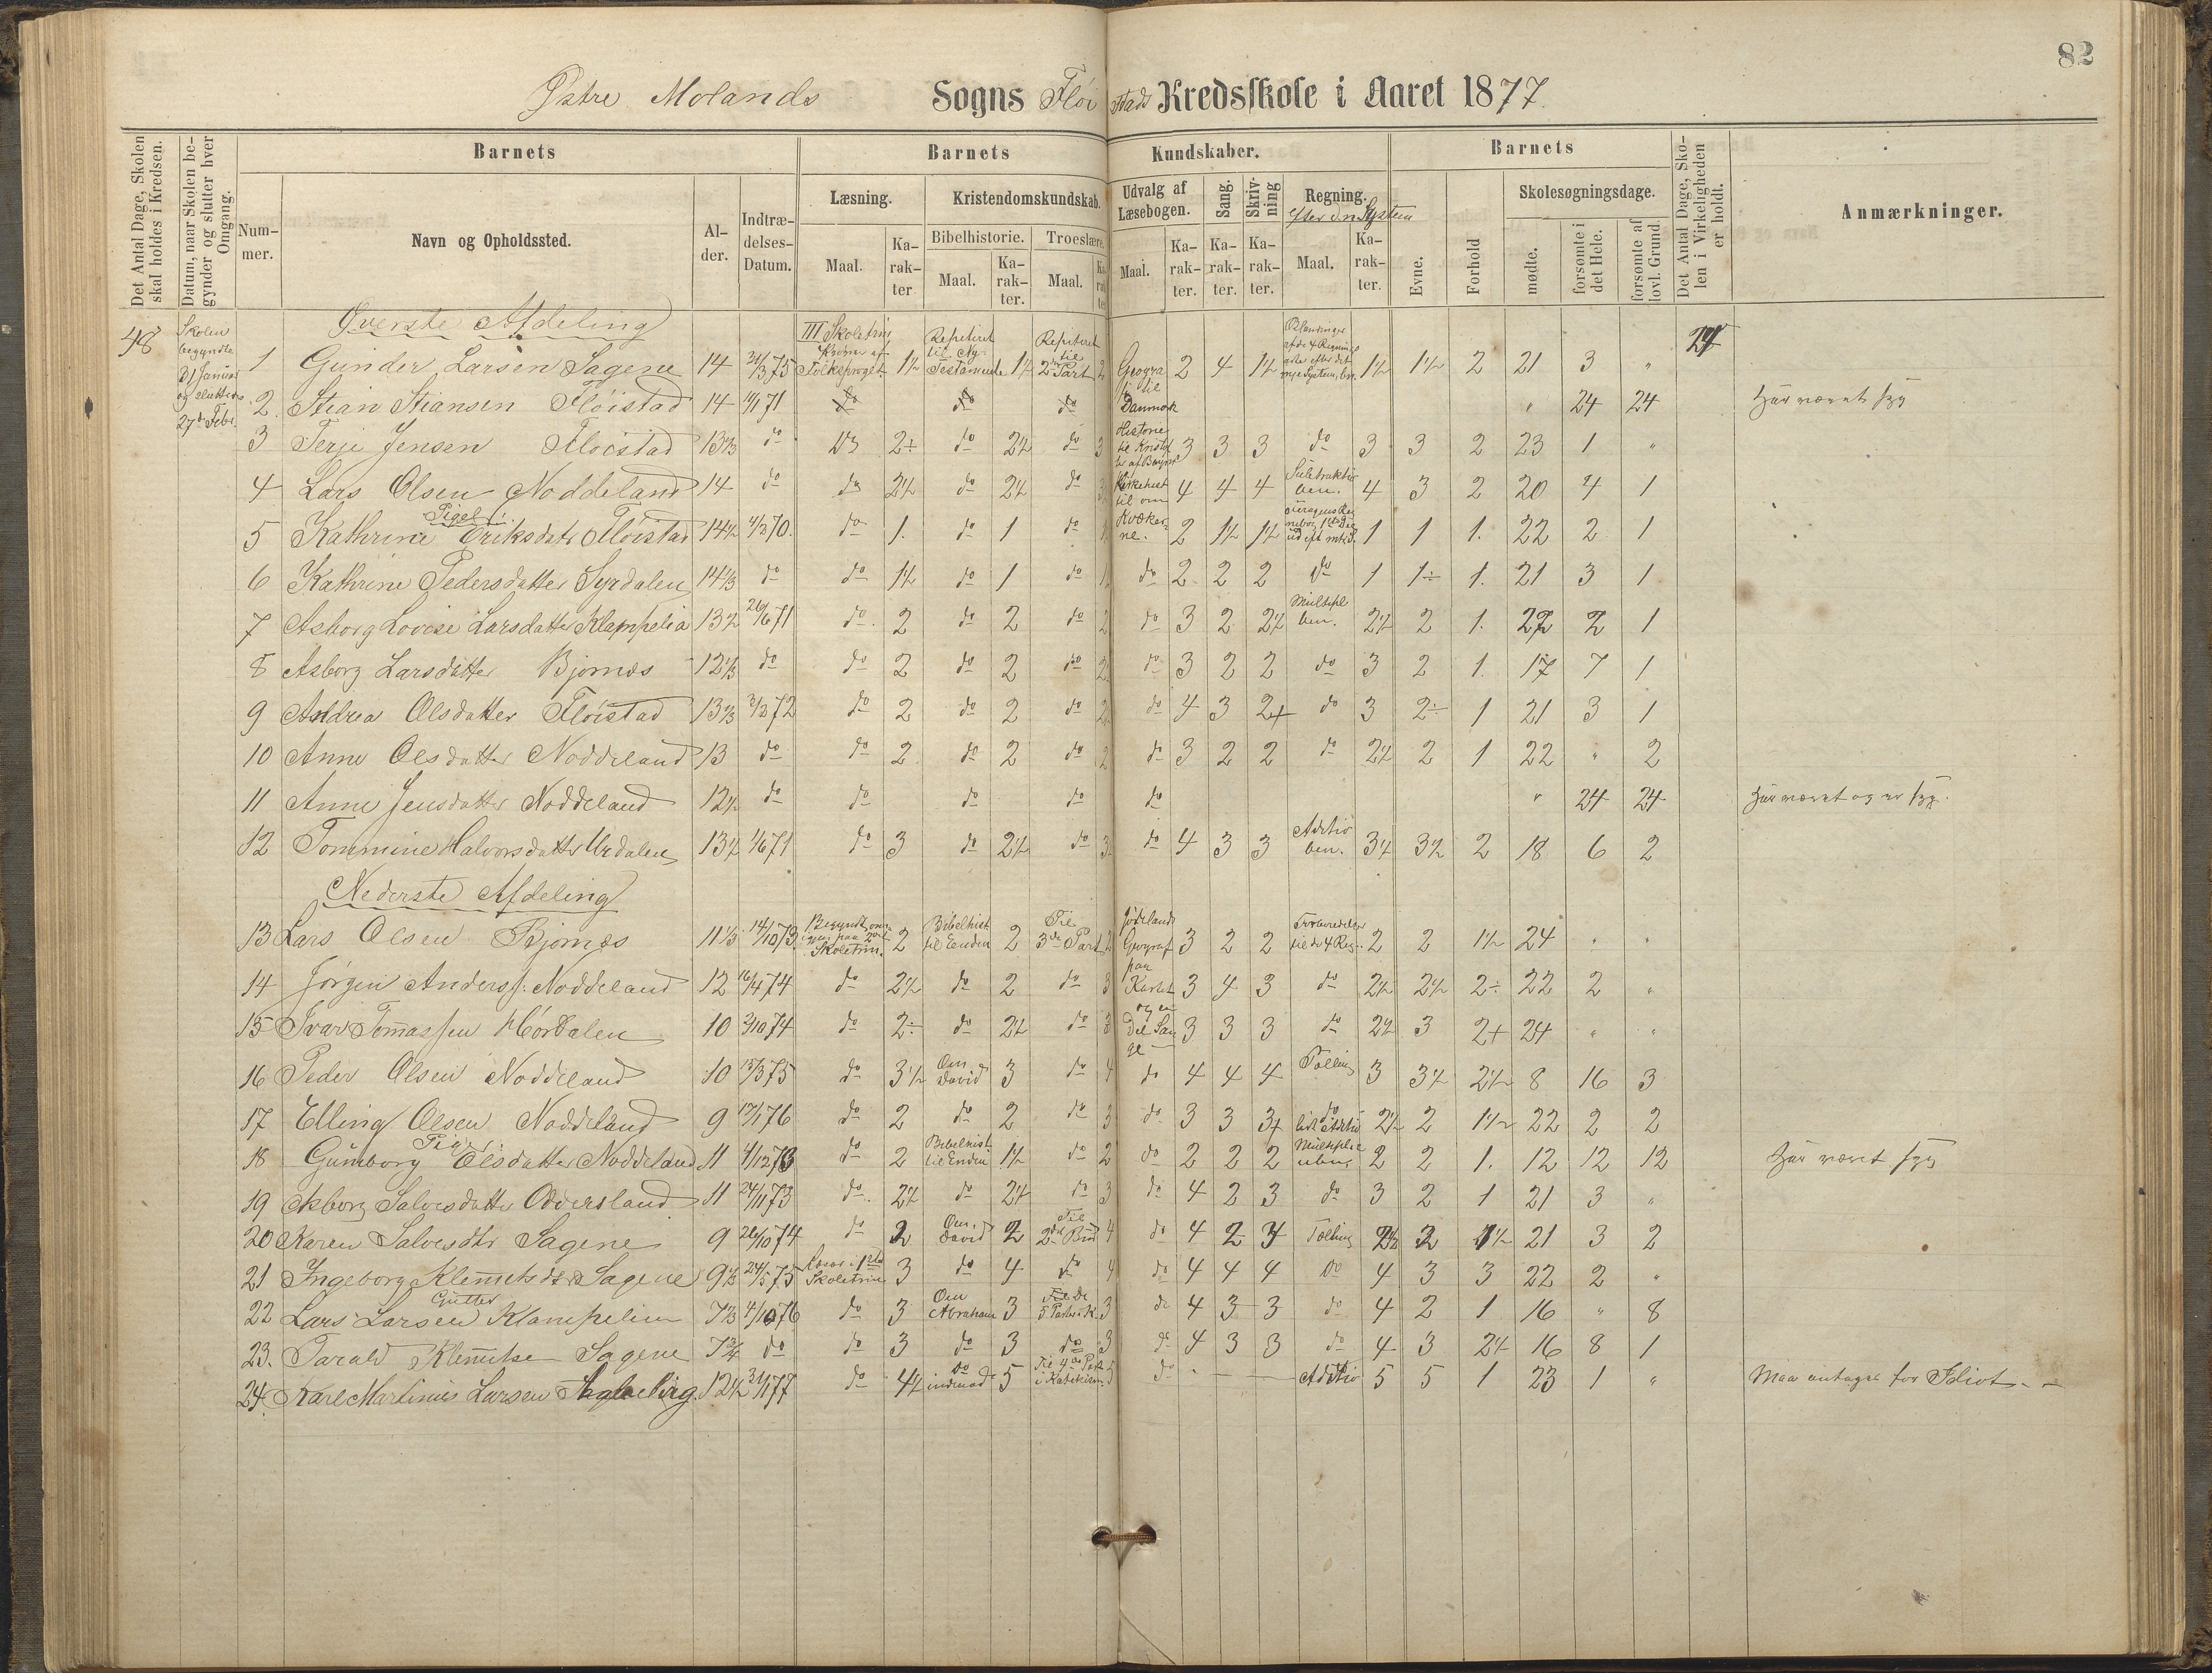 82
Østre Molands Sogns Flöistads Kredsskole i Aaret 1877.
Det Antal Dage, Skolen skal holdes i Kredsen.
Datum, naar Skolen begynder og slutter hver Omgang.
Barnets
Nummer.
Navn og Opholdssted.
Alder.
Indtrædelses-Datum.
Barnets Kundskaber.
Læsning.
Maal.
Karakter
Kristendomskundskab.
Bibelhistorie.
Maal.
Karakter.
Troeslære.
Maal.
Udvalg af Læsebogen.
Maal.
Karakter.
Sang.
Karakter.
Skrivning
Karakter.
Regning.
efter dn System
Maal.
Karakter.
Barnets
Evne.
Forhold
Skolesøgningsdage.
mødte.
forsømte i det Hele.
forsømte af lovl. Grund.
Det Antal Dage, Skolen i Virkeligheden er holdt.
Anmærkninger.
48
Skolen begyndte 31 Januar og sluttedes 27de Febr.
Øverste Afdeling
24
1 Gunder Larsen Sagene 14 III Skoletrin Repeteret til Ny Testamente Repeteret til 2den Part 2 Geogra 2 4 1½ 1½ 1½ 2 21 3 "
2. Stian Stiansen Flöistad 14 do do do til Danmark " 24 24 Har været syg
3 Terje Jensen Flöistad 13⅔ do 2÷ do 2½ do 3 Historie 3 3 3 do 3 3 2 23 1 "
4 Lars Olsen Noddeland 14 do do 2½ do 2½ do 3 Kirkehist til om 4 4 4 Subtraktio ben. 4 3 2 20 4 1
Piger:
5 Kathrine Eriksdatr Flöistad 14½ 4/3 70. do 1. do 1 do 1 Kvækerne. 2 1½ 1½ 1 1 1. 22 2 1
6 Kathrine Pedersdatter Syrdalen 14⅓ do do 1½ do 1 do 1 do 2 2 2 do 1 1÷ 1. 21 3 1
7 Asborg Lovise Larsdatter Klampelia 13½ 26/6 71 do. 2 do 2 do 2 do 3 2 2½ Multipl ben. 2½ 2 1. 22 2 1
8 Asborg Larsdatter Bjornæs 12⅓ do do 2 do 2 do 2 do 3 2 2 do 3 2 1. 17 7 1
9 Andrea Olsdatter Flöistad 13⅔ 3/3 72 do 2 do 2 do 2 do 4 3 2+ do 3 2÷ 1 21 3 1
10 Anne Olsdatter Noddeland 13 do do 2 do 2 do 2 do 3 2 2 do 2½ 2 1 22 " 2
11 Anne Jensdatter Noddeland 12½ do do do do do " 24 24 Har været og er syg.
12 Tommine Halvorsdatter Urdalen 13½ 1/6 71 do 3 do 2½ do 3 do 4 3 3 Aditio ben. 3½ 3½ 2 18 6 2
Nederste Afdeling
13 Lars Olsen Bjornæs 11⅓ 14/10 73. Skoletrin. 2 Bibelhist til Enden 2 Til 3de Part 2 Jödeland Geograf 3 2 2 Forberedelse til de 4 Reg. 2 2 1½ 24 " "
14 Jörgen Anders. Noddeland 12 16/4 74 do 2½ do 2 do 3 paa Kartet 3 4 3 do 2½ 2½ 2÷ 22 2 "
15 Ivar Tomassen Hördalen 10 3/10 74 do 2÷ do 2½ do 3 og en Del Sange 3 3 3 do 2½ 3 2+ 24 " "
16 Peder Olsen Noddeland 10 15/3 75 do 3½ Om David 3 do 4 do 4 4 4 Tælling 3 3½ 2½ 8 16 3
17 Elling Olsen Noddeland 9 17/1 76 do 2 do 2 do 3 do 3 3 3+ do lidt Aditio 2½ 2 1½ 22 2 2
Piger:
18 Gumborg Olsdatter Noddeland 11 4/12 73 do 2 Bibelhist til Enden 1½ do 2 do 2 2 2 2 2 1. 12 12 12 Har været syg
19 Asborg Salvesdatter Oddersland 11 24/11 73 do. 2½ do 2½ do 3 do 4 2 3 do 3 2 1 21 3 "
20 Karen Salvesdtr Sagene 9 26/10 74 do 2 Om David 2 Til 2det Bud 4 do 4 2 4 Tælling 2½ 2 1½ 21 3 2
21 Ingeborg Klemetsdtr Sagene 9½ 24/5 75 Læser i 1ste Skoletrin 3 do 4 do 4 do 4 4 4 do 4 3 3 22 2 "
Gutter
22 Lars Larsen Klampelien 7⅔ 4/10 76 do 3 Om Abraham 3 3 do 4 3 3 do 4 2 1 16 " 8
23. Tarald Klemetsen Sagene 7¾ do do 3 do 3 do 3 do 4 3 3 do 4 3 2½ 16 8 1
24. Karl Martinius Larsen 12½ 31/1 77 do 4½ do 5 Til 4de Part i Katekism. 5 do - - - Aditio 5 5 1 23 1 " Maa antages for Idiot. - -